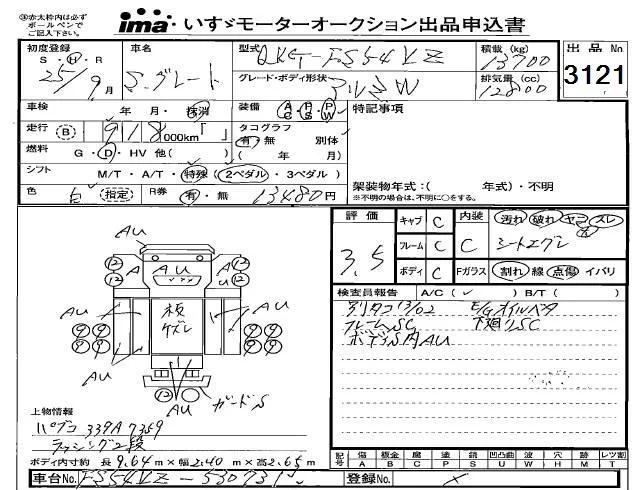 ※赤太枠内は必ず
ボールペンで
ご記入下さい。
ima いすゞモーターオークション出品申込書
初度登録
S・H・R
25年9月
車名
S.グレート
型式
QKG-FS54VZ
グレード・ボディ形状
積載 (kg)
13700
排気量 (cc)
12800
出品No.
3121
車検 年 月・抹消
装備 AC PS PW
特記事項
走行 (B) 918000km「 」
タコグラフ
有・無 別体
( 年 月)
燃料 G・D・HV 他( )
シフト M/T・A/T・特殊 (2ペダル・3ペダル)
色 白 (指定) R券 有・無 13480円
架装物年式:( 年式)・不明
※不明の場合は、不明に○をする。
評価
3.5
キャブ C
フレーム C
ボディ C
内装 C
Fガラス
汚れ 破れ ヤニ スレ
割れ 線 点傷 イバリ
検査員報告 A/C( ✓ ) B/T( )
別タコ 13/02 E/Gオイルベタ
フレームSC 下廻りSC
ボディS内AU
AU
AU
12 12 A AU A 12 12
AU
板
ケズレ
AU
9 9 9 9
9 9 9 9
AU
12
AU
ガードS
上物情報
パブコ 339A7359
ラッシング2段
ボディ内寸約 長9.64m×幅2.40m×高2.65m
記号 傷 板金 腐 塗 錆 凹凸曲 波 穴 跡 レツ割
A B C P S U W H M T
車台No. FS54VZ-530731
登録No.